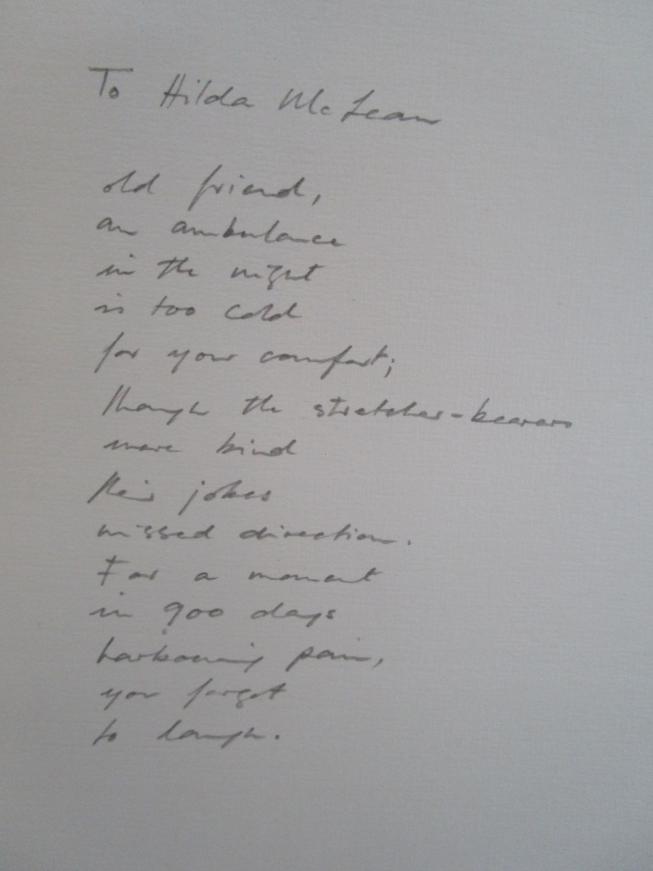 To Hilda McLean
old friend,
an ambulance
in the night
is too cold
for your comfort;
though the stretcher-bearers
were kind
their jokes
missed direction.
For a moment
in 900 days
harbouring pain,
you forgot
to laugh.